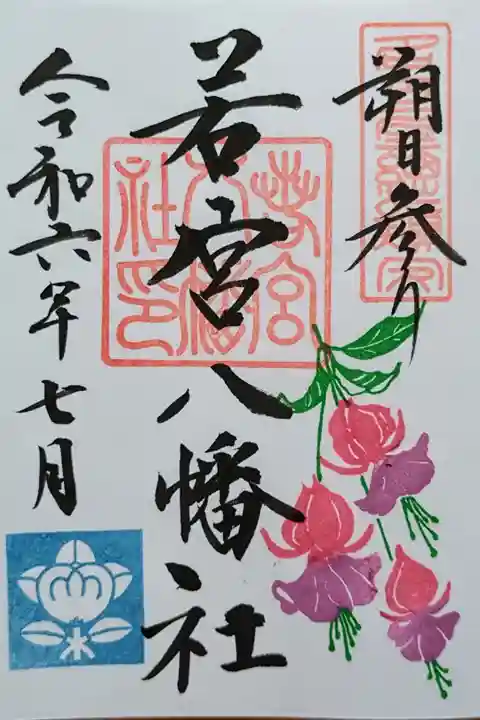 朔日参り
若宮八幡社
若宮八幡社印
令和六年七月